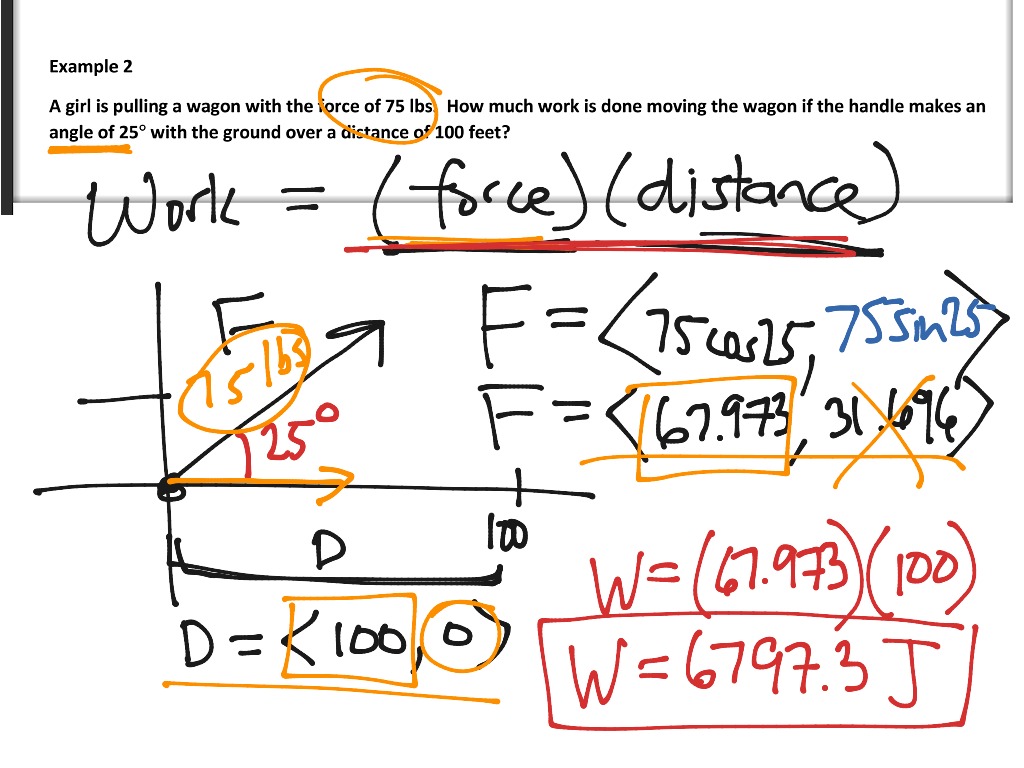 Example 2
A girl is pulling a wagon with the force of 75 lbs. How much work is done moving the wagon if the handle makes an
angle of 25° with the ground over a distance of 100 feet?
Work = (force)(distance)
F
75 lbs
25°
F = <75cos25, 75sin25>
F = <67.973, 31.696>
D
100
D = <100, 0>
W = (67.973)(100)
W = 6797.3 J